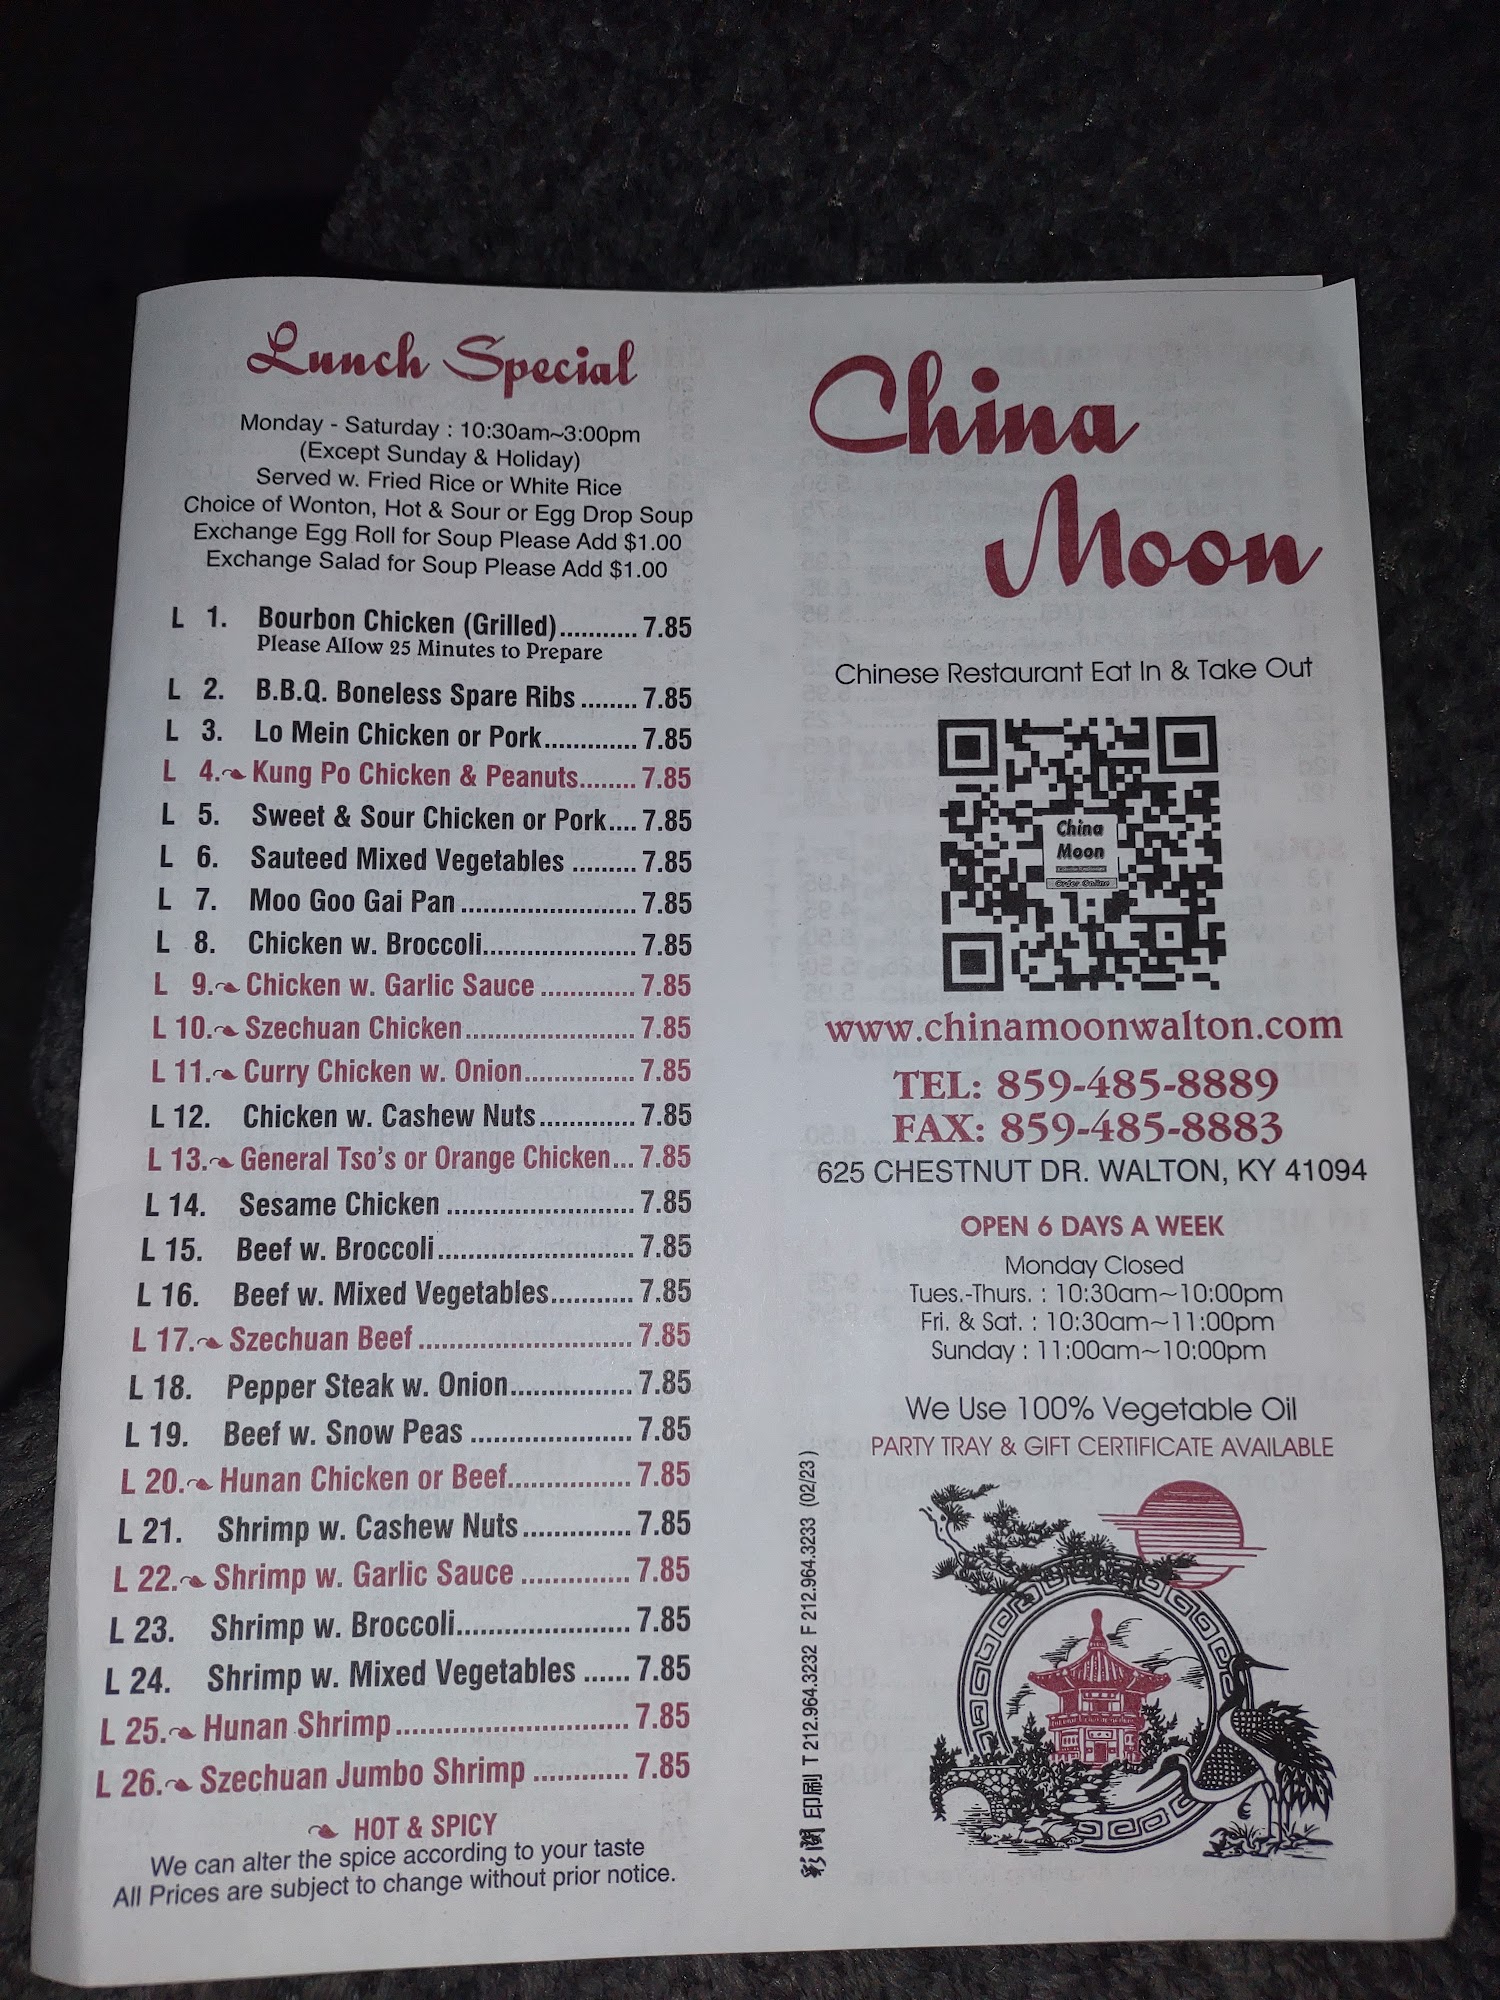 Lunch Special
Monday - Saturday : 10:30am~3:00pm
(Except Sunday & Holiday)
Served w. Fried Rice or White Rice
Choice of Wonton, Hot & Sour or Egg Drop Soup
Exchange Egg Roll for Soup Please Add $1.00
Exchange Salad for Soup Please Add $1.00
L 1. Bourbon Chicken (Grilled)........... 7.85
Please Allow 25 Minutes to Prepare
L 2. B.B.Q. Boneless Spare Ribs ........ 7.85
L 3. Lo Mein Chicken or Pork............. 7.85
L 4. Kung Po Chicken & Peanuts........ 7.85
L 5. Sweet & Sour Chicken or Pork.... 7.85
L 6. Sauteed Mixed Vegetables ......... 7.85
L 7. Moo Goo Gai Pan ......................... 7.85
L 8. Chicken w. Broccoli...................... 7.85
L 9. Chicken w. Garlic Sauce ............. 7.85
L 10. Szechuan Chicken........................ 7.85
L 11. Curry Chicken w. Onion................ 7.85
L 12. Chicken w. Cashew Nuts.............. 7.85
L 13. General Tso's or Orange Chicken... 7.85
L 14. Sesame Chicken .......................... 7.85
L 15. Beef w. Broccoli............................ 7.85
L 16. Beef w. Mixed Vegetables............ 7.85
L 17. Szechuan Beef .............................. 7.85
L 18. Pepper Steak w. Onion................. 7.85
L 19. Beef w. Snow Peas ....................... 7.85
L 20. Hunan Chicken or Beef................. 7.85
L 21. Shrimp w. Cashew Nuts............... 7.85
L 22. Shrimp w. Garlic Sauce ............... 7.85
L 23. Shrimp w. Broccoli........................ 7.85
L 24. Shrimp w. Mixed Vegetables ...... 7.85
L 25. Hunan Shrimp ............................... 7.85
L 26. Szechuan Jumbo Shrimp ............. 7.85
HOT & SPICY
We can alter the spice according to your taste
All Prices are subject to change without prior notice.
China
Moon
Chinese Restaurant Eat In & Take Out
China
Moon
Order Online
www.chinamoonwalton.com
TEL: 859-485-8889
FAX: 859-485-8883
625 CHESTNUT DR. WALTON, KY 41094
OPEN 6 DAYS A WEEK
Monday Closed
Tues.-Thurs. : 10:30am~10:00pm
Fri. & Sat. : 10:30am~11:00pm
Sunday : 11:00am~10:00pm
We Use 100% Vegetable Oil
PARTY TRAY & GIFT CERTIFICATE AVAILABLE
印刷 T 212.964.3232 F 212.964.3233 (02/23)